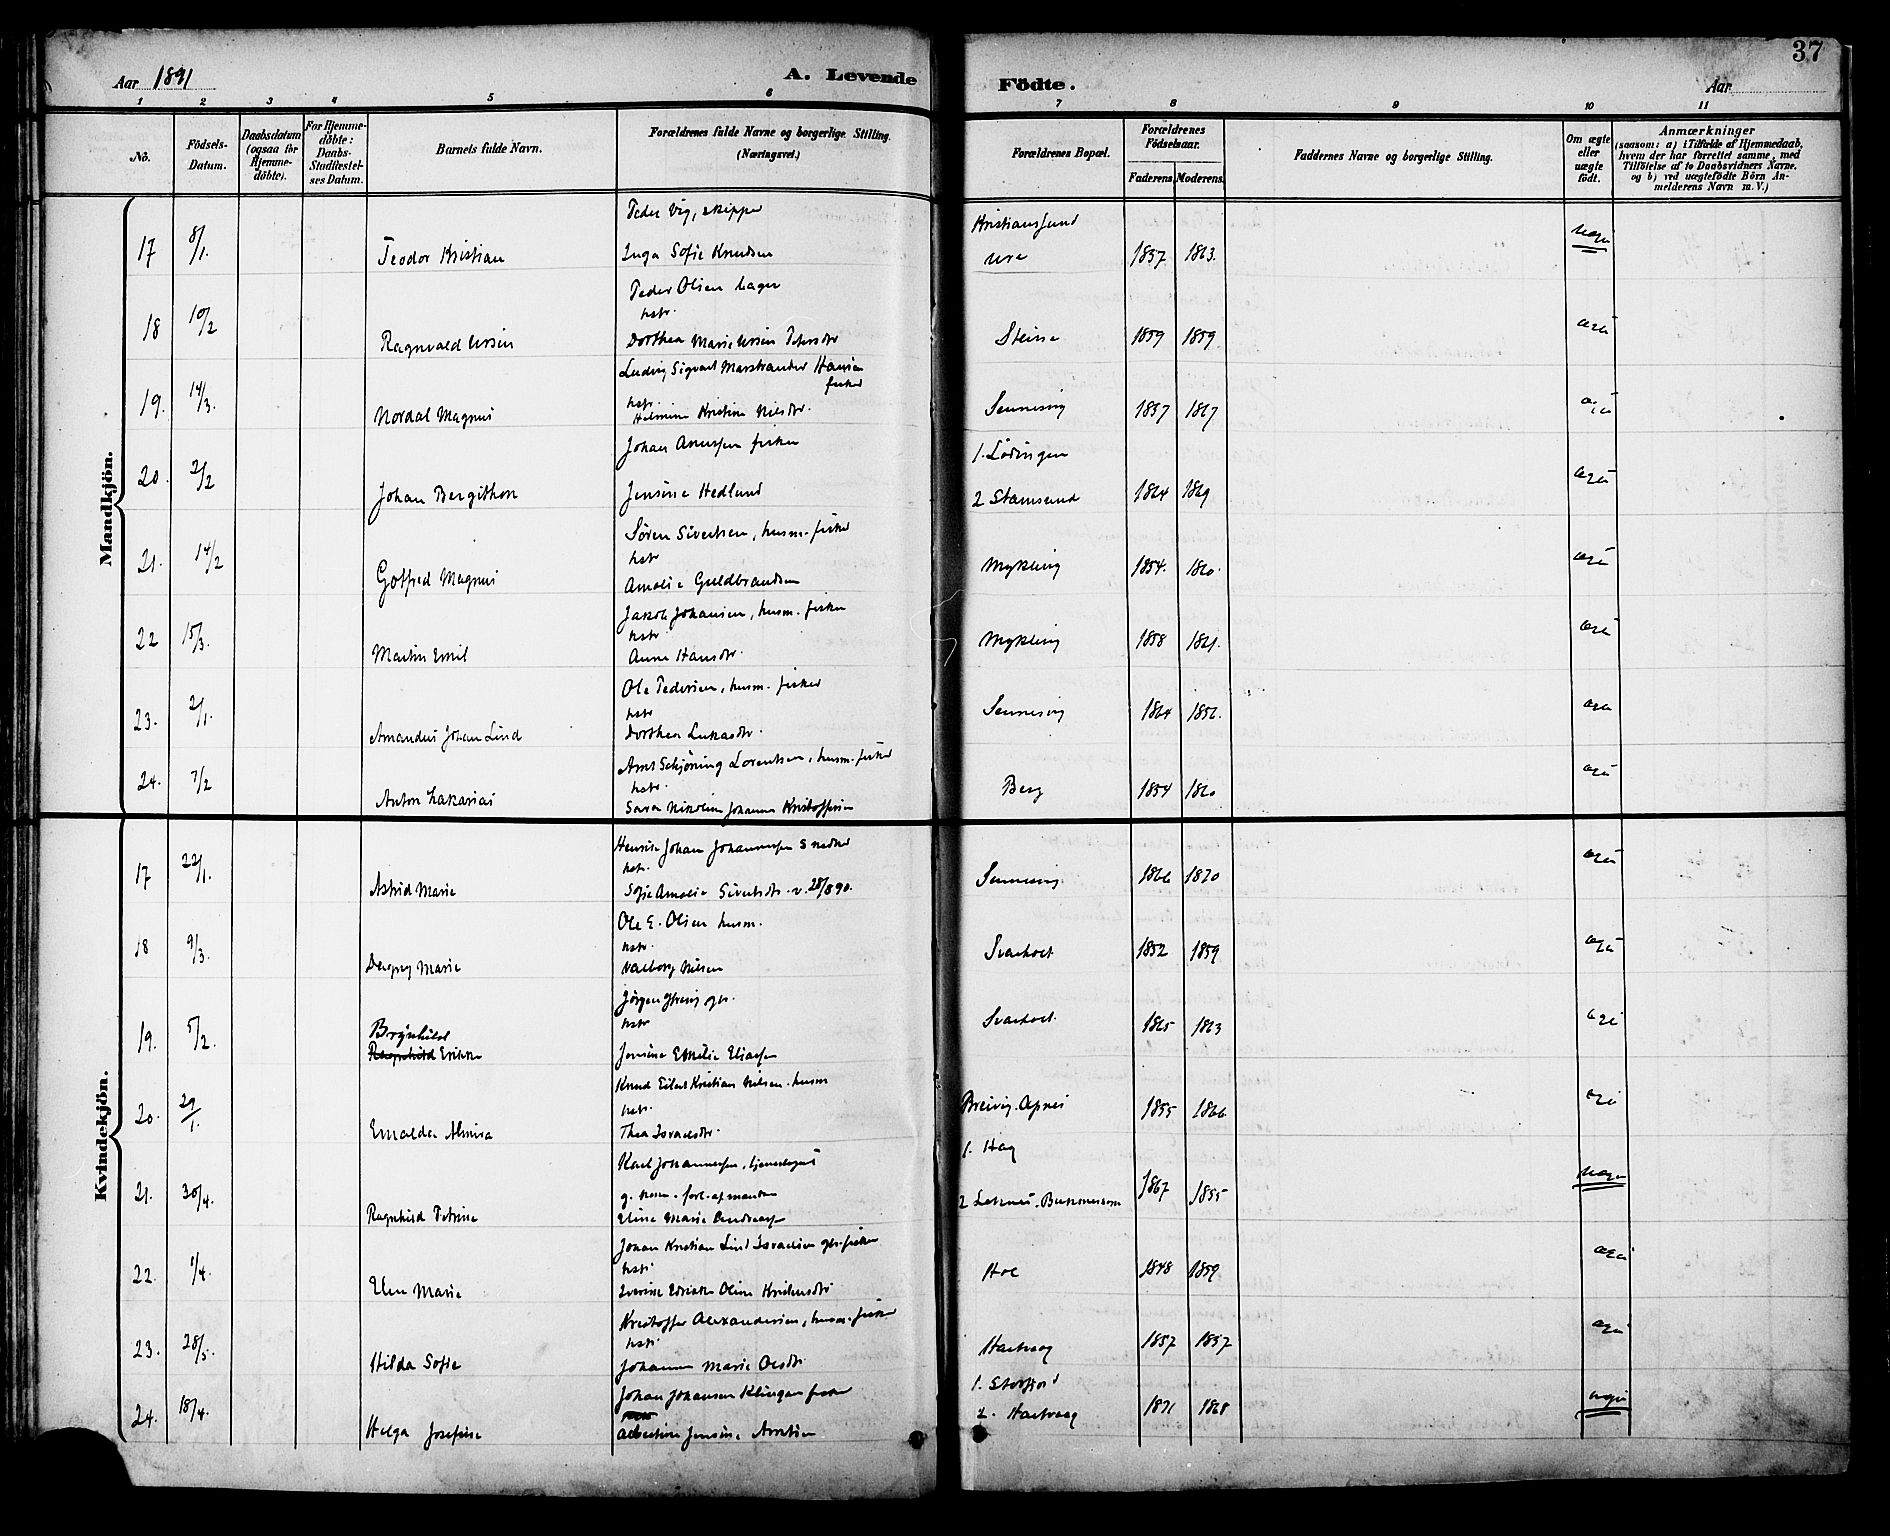 Aar 1891
A. Levende
Födte.
Aar
37
1 2 3 4 5 6 7 8 9 10 11
Nô.
Födsels-
Datum.
Daabsdatum
(ogsaa for
Hjemme-
döbte).
For Hjemme-
döbte:
Daabs-
Stadfæstel-
ses Datum.
Barnets fulde Navn.
Forældrenes fulde Navne og borgerlige Stilling.
(Næringsvei.)
Forældrenes Bopæl.
Forældrenes
Födselsaar.
Faderens. Moderens.
Faddernes Navne og borgerlige Stilling.
Om ægte
eller
uægte
födt.
Anmærkninger
(saasom: a) i Tilfælde af Hjemmedaab,
hvem der har forrettet samme, med
Tilföielse af to Daabsvidners Navne.
og b) ved uægtefödte Börn An-
melderens Navn m. V.)
Mandkjön.
Peder Vig, skipper
Kristianssund
17 8/1. Teodor Kristian Inga Sofie Knudsen Ure 1857 1863. uægte
Peder Olsen
hstr.
18 10/2 Ragnvald Ursin Dorthea Marie Ursin Petersdtr Steine 1859 1859. ægte
Ludvig Sigvart Marstrander Hansen
fisker
hstr.
19. 14/3. Nordal Magnus Helmine Kristine Nilsdtr. Sennesvig 1857 1867 ægte
Johan fisker
1. Lödingen
20. 2/2 Johan Bergithon Jensine Hedlund 2 Stamsund 1864 1869 ægte
Sören Sivertsen, husm. fisker
hstr
21. 14/2 Gotfred Magnus Amalie Guldbrandsen Myklevig 1854. 1860. ægte
Jakob Johansen, husm. fisker
hstr
22 15/3. Martin Emil Anne Hansdtr. Myklevig 1858 1861. ægte
Ole Pedersen, husm. fisker
hstr
23. 2/1. Amandus Johan Lind Dorthea Lukasdtr. Sennesvig 1864 1856. ægte
Arnt Schjöning Lorentsen, husm. fisker
hstr.
24. 7/2 Anton Zakarias Sara Nikoline Johanna Kristoffersen Berg 1854 1860 ægte
Kvindekjön.
Henrik Johan Johannessen Snedker
hstr.
17 22/1. Astrid Marie Sofie Amalie Sivertsdtr. v. 28/8 90. Sennesvig 1866 1870 ægte
Ole E. Olsen husm.
hstr.
18 9/3. Dagny Marie Valborg Nilsen Svarholt 1852 1859 ægte
Jörgen gbr.
hstr
19. 5/2. Brynhild Svarholt 1865 1863 ægte
Ragnhild Erikka Jensine Emilie Eliassen
Knud Eilert Kristian Nilsen. husm
hstr.
20. 29/1. Emalda Almira Thea Israelsdtr. Breivig. Apnes 1855 1866 ægte
Karl Johannessen,
1. Hag
21. 30/4. Ragnhild Petrine Eline Marie Andreassen 2 Leknes. Buksnes 1867 1855 uægte
Johan Kristian Lind Israelsen gbr. fisker
hstr.
22. 1/4. Elen Marie Oline Kristensdtr Hol 1848 1859 ægte
Kristoffer Alexandersen, husm. fisker
hstr.
23. 28/5. Hilda Sofie Johanna Marie Olsdtr. Hartvaag 1857 1857 ægte
Johan Johansen Klingan fisker
1. Storfjord
24. 18/4. Helga Josefine Albertine Jensine Arntsen 2. Hartvaag 1871 1868 uægte